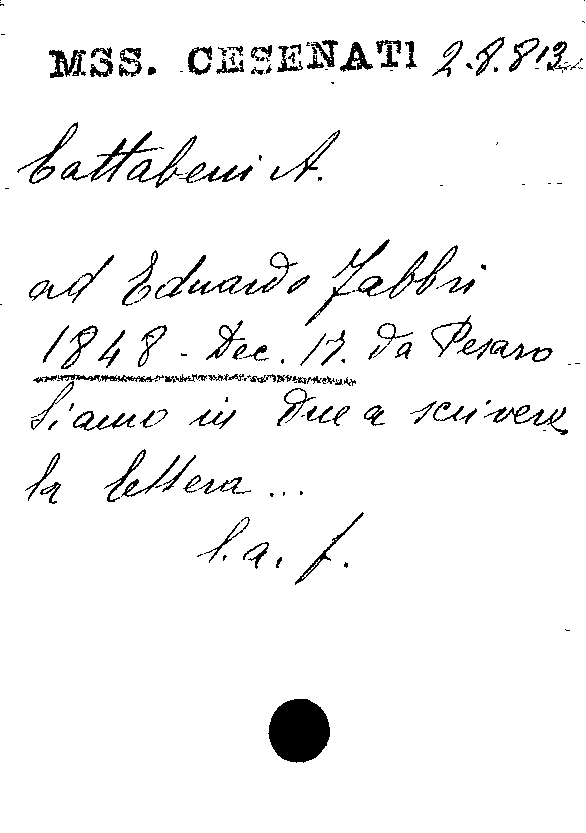 MSS. CESENATI 2.8.813
Cattabeni A.
ad Eduardo Fabbri
1848 - Dec. 17. da Pesaro
Siamo in due a scrivere
la lettera ...
l. a. f.